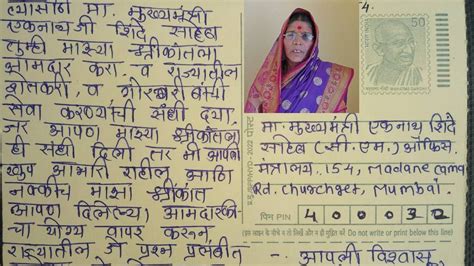 मा. मुख्यमंत्री
एकनाथजी शिंदे साहेब
तुम्ही माझ्या श्रीकांतला
आमदार करा. व राज्यातील
शेतकरी, व गोरगरीबांची
सेवा करण्याची संधी द्या.
जर आपण माझ्या श्रीकांतला
ही संधी दिली तर मी आपली
खुप आभारी राहील आणि
नक्कीच माझा श्रीकांत
आपण दिलेल्या आमदारकी
चा योग्य वापर करून
राज्यातील जे प्रश्न प्रलंबीत
4.
50
मा. मुख्यमंत्री एकनाथ शिंदे
साहेब (सी. एम.) ऑफिस.
मंत्रालय. 154, Madame cama
Rd. churchget, Mumbai.
पिन PIN 400032
Do not write or print below this line
- आपली विश्वासू